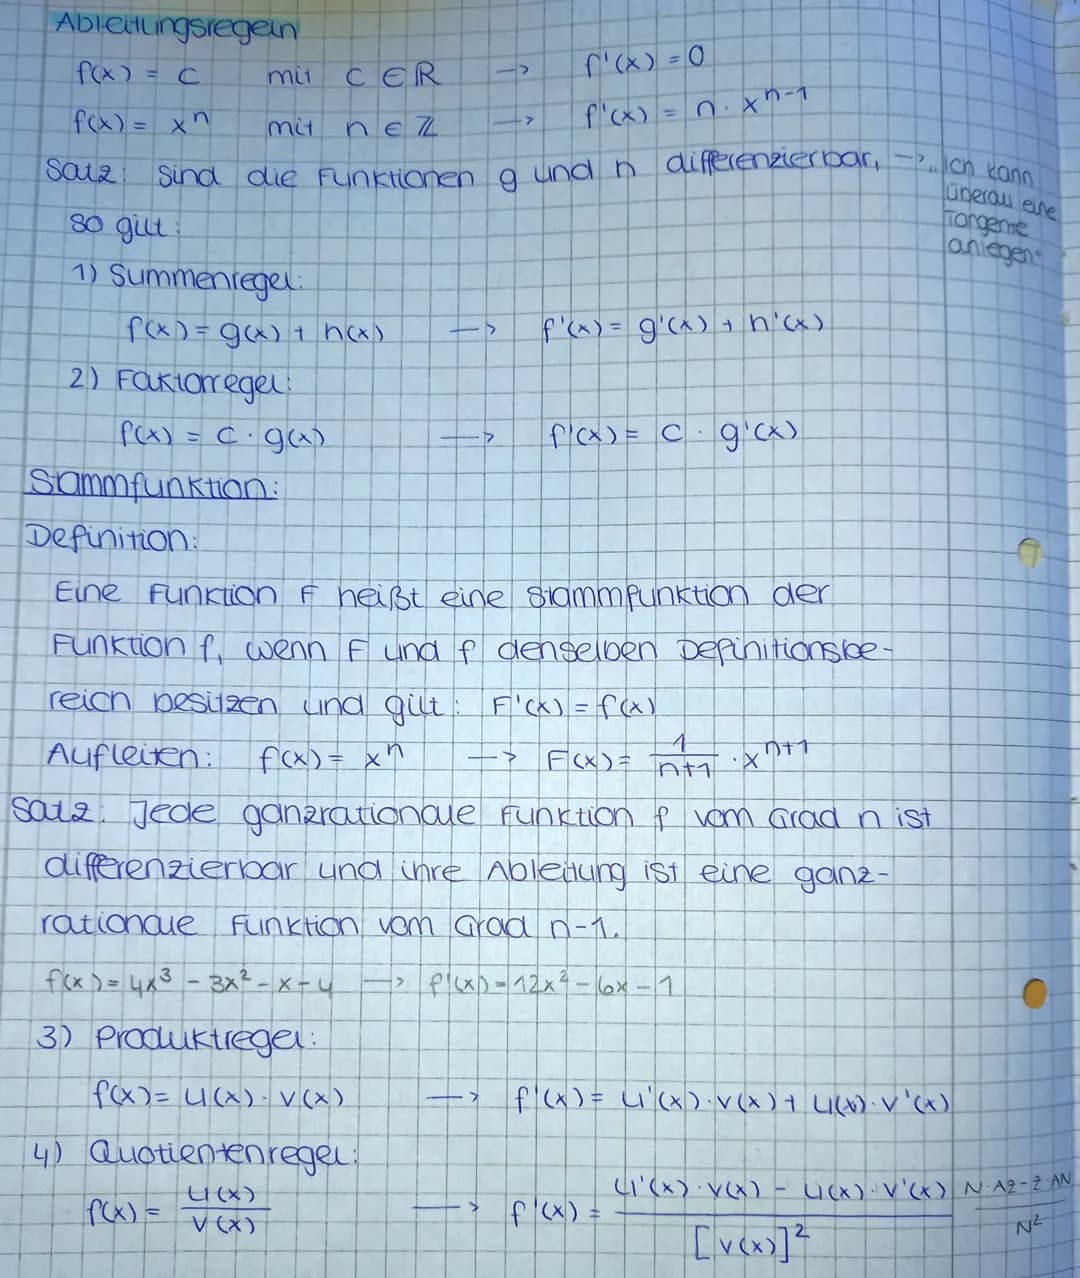 Ableitungsregeln
f(x) = c mit c ∈ R –> f'(x) = 0
f(x) = xⁿ mit n ∈ ℤ –> f'(x) = n · xⁿ⁻¹
Satz: Sind die Funktionen g und h differenzierbar, –> "Ich kann
überall eine
Tangente
anlegen"
so gilt:
1) Summenregel:
f(x) = g(x) + h(x) –> f'(x) = g'(x) + h'(x)
2) Faktorregel:
f(x) = c · g(x) –> f'(x) = c · g'(x)
Stammfunktion:
Definition:
Eine Funktion F heißt eine Stammfunktion der
Funktion f, wenn F und f denselben Definitionsbe-
reich besitzen und gilt: F'(x) = f(x)
Aufleiten: f(x) = xⁿ –> F(x) = 1/(n+1) · xⁿ⁺¹
Satz: Jede ganzrationale Funktion f vom Grad n ist
differenzierbar und ihre Ableitung ist eine ganz-
rationale Funktion vom Grad n-1.
f(x) = 4x³ - 3x² - x - 4 –> f'(x) = 12x² - 6x - 1
3) Produktregel:
f(x) = u(x) · v(x) –> f'(x) = u'(x) · v(x) + u(x) · v'(x)
4) Quotientenregel:
f(x) = u(x)/v(x) –> f'(x) = (u'(x) · v(x) - u(x) · v'(x))/[v(x)]² (N·AZ-Z·AN)/N²